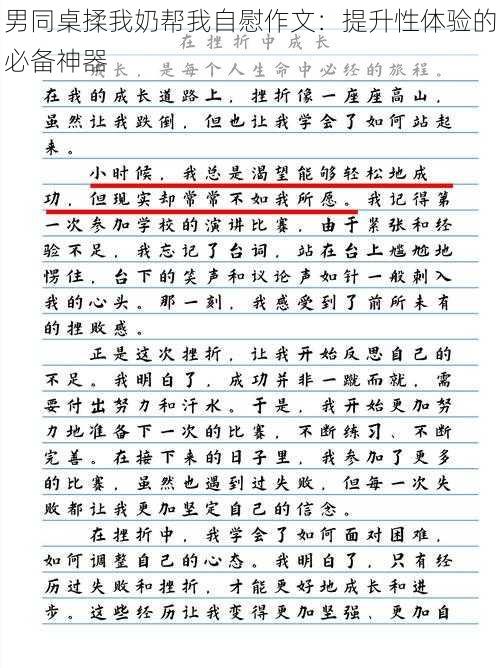 在挫折中成长
成长，是每个人生命中必经的旅程。
在我的成长道路上，挫折像一座座高山，
虽然让我跌倒，但也让我学会了如何站起
来。
小时候，我总是渴望能够轻松地成
功，但现实却常常不如我所愿。我记得第
一次参加学校的演讲比赛，由于紧张和经
验不足，我忘记了台词，站在台上尴尬地
愣住，台下的笑声和议论声如针一般刺入
我的心头。那一刻，我感受到了前所未有
的挫败感。
正是这次挫折，让我开始反思自己的
不足。我明白了，成功并非一蹴而就，需
要付出努力和汗水。于是，我开始更加努
力地准备下一次的比赛，不断练习、不断
完善。在接下来的日子里，我参加了更多
的比赛，虽然也遇到过失败，但每一次失
败都让我更加坚定自己的信念。
在挫折中，我学会了如何面对困难，
如何调整自己的心态。我明白了，只有经
历过失败和挫折，才能更好地成长和进
步。这些经历让我变得更加坚强、更加自